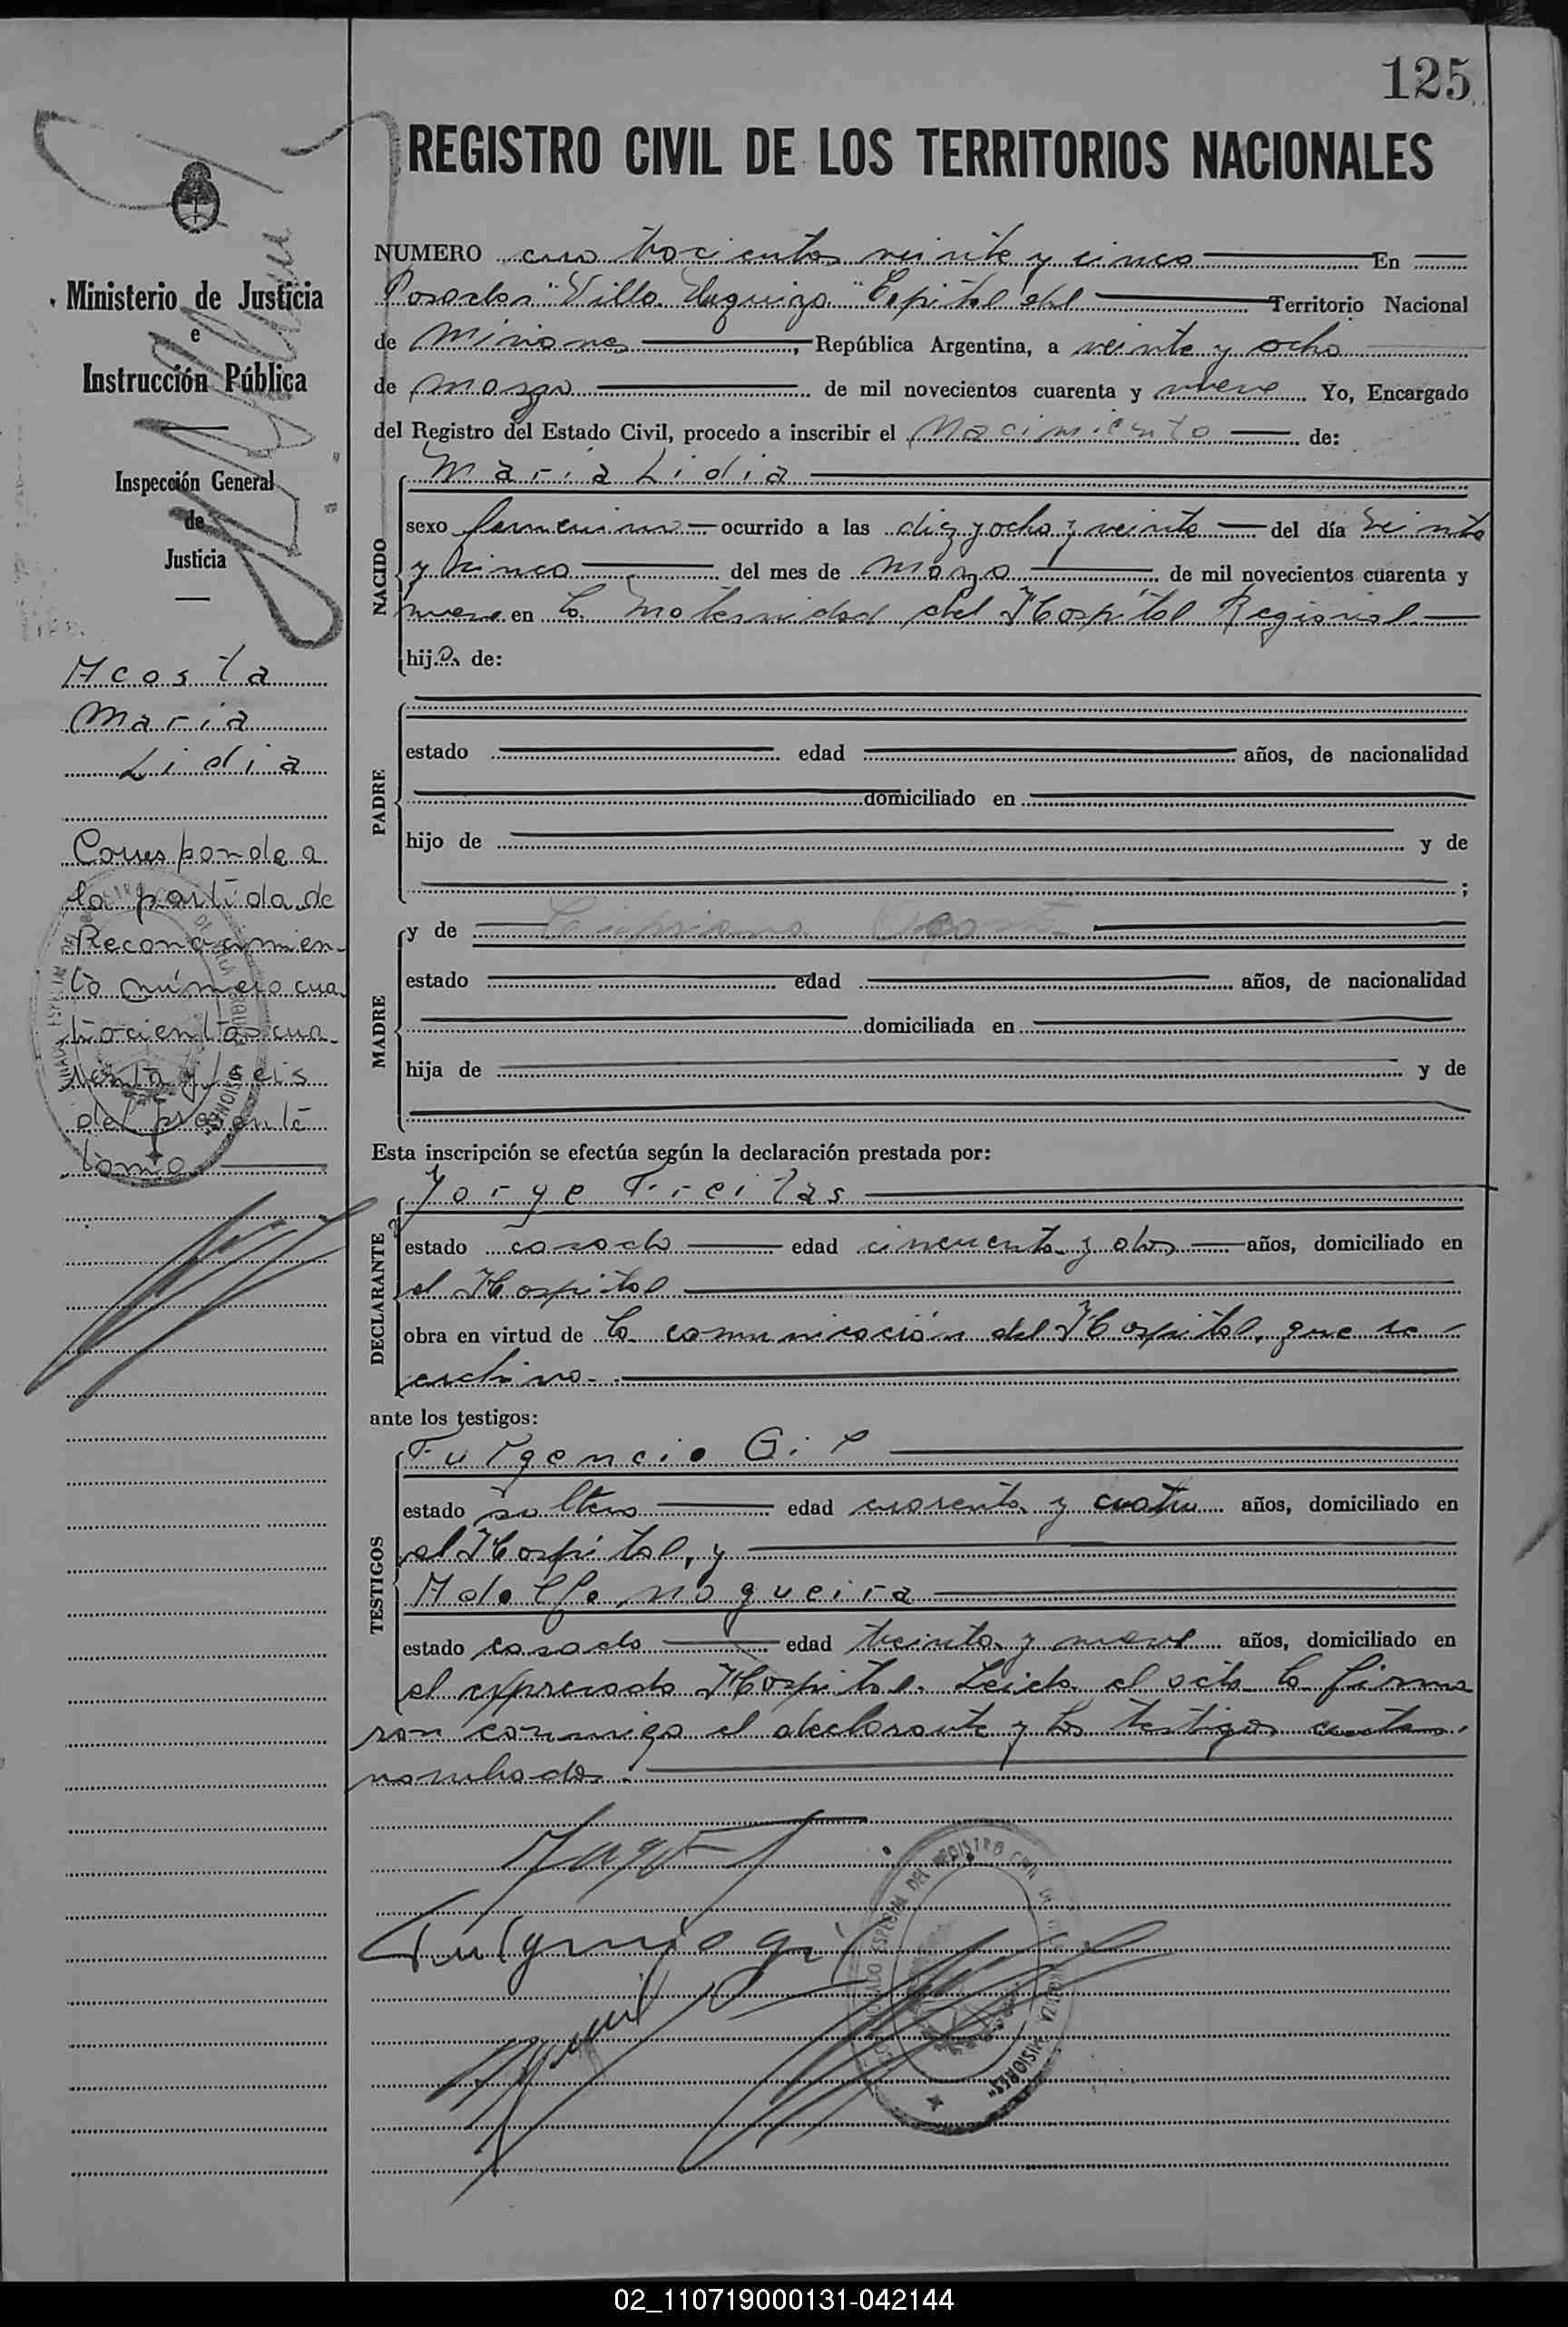 125
REGISTRO CIVIL DE LOS TERRITORIOS NACIONALES
Ministerio de Justicia
e
Instrucción Pública
Inspección General
de
Justicia
Acosta
Maria
Lidia
Corresponde a
la partida de
Reconocimien-
to número cua-
trocientos cua-
renta y seis
del presente
tomo
NUMERO cuatrocientos veinte y cinco En
Posadas "Villa Urquiza" Capital del Territorio Nacional
de Misiones, República Argentina, a veinte y ocho
de marzo de mil novecientos cuarenta y nueve Yo, Encargado
del Registro del Estado Civil, procedo a inscribir el Nacimiento de:
NACIDO
Maria Lidia
sexo femenino ocurrido a las diez y ocho y veinte del día veinte
y cinco del mes de marzo de mil novecientos cuarenta y
nueve en la Maternidad del Hospital Regional
hija de:
PADRE
estado edad años, de nacionalidad
domiciliado en
hijo de y de
;
MADRE
y de Cipriana Acosta
estado edad años, de nacionalidad
domiciliada en
hija de y de
Esta inscripción se efectúa según la declaración prestada por:
DECLARANTE
Jorge Freitas
estado casado edad cincuenta y dos años, domiciliado en
el Hospital
obra en virtud de la comunicación del Hospital, que se
archiva.
ante los testigos:
TESTIGOS
Fulgencio Gil
estado soltero edad cuarenta y cuatro años, domiciliado en
el Hospital, y
Adolfo Nogueira
estado casado edad treinta y nueve años, domiciliado en
el expresado Hospital. Leida el acta la firma
ron conmigo el declarante y los testigos
nombrados.
Fulgencio Gil
REGISTRO CIVIL
MISIONES
02_110719000131-042144